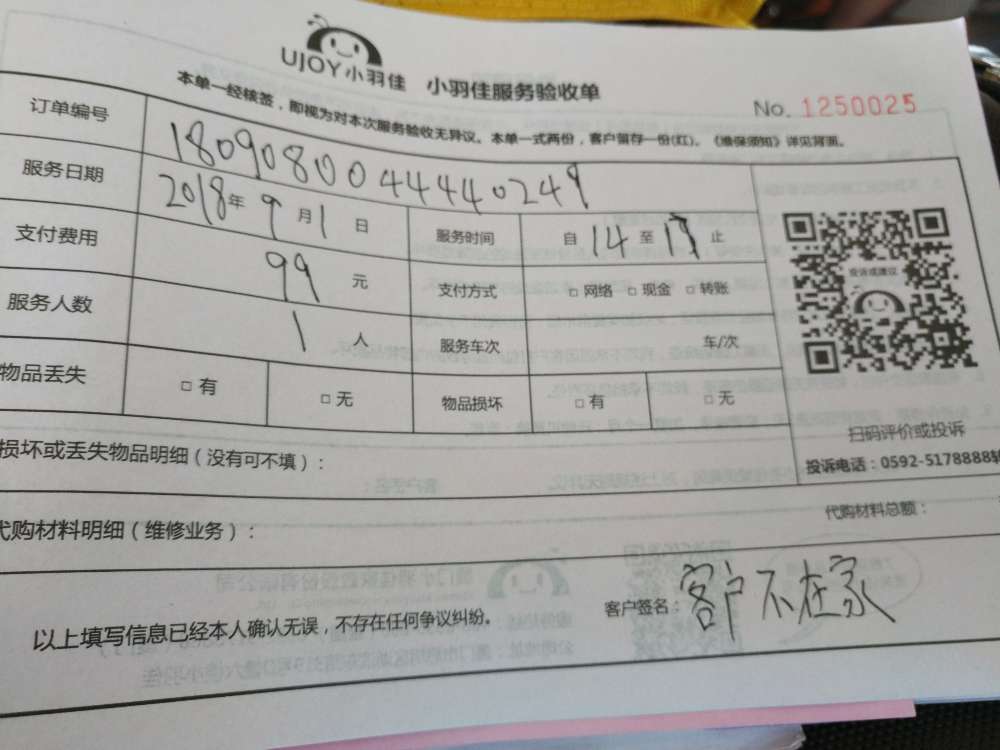 UJOY小羽佳 小羽佳服务验收单
No. 1250025
本单一经核签，即视为对本次服务验收无异议。本单一式两份，客户留存一份(红)。《维保须知》详见背面。
订单编号 1809080044440249
服务日期 2018年9月1日 服务时间 自14至17止
支付费用 99元 支付方式 □网络 □现金 □转账
服务人数 1人 服务车次 车/次
物品丢失 □有 □无 物品损坏 □有 □无
投诉或建议
扫码评价或投诉
投诉电话：0592-5178888转
损坏或丢失物品明细（没有可不填）：
代购材料明细（维修业务）： 代购材料总额：
以上填写信息已经本人确认无误，不存在任何争议纠纷。 客户签名：客户不在家